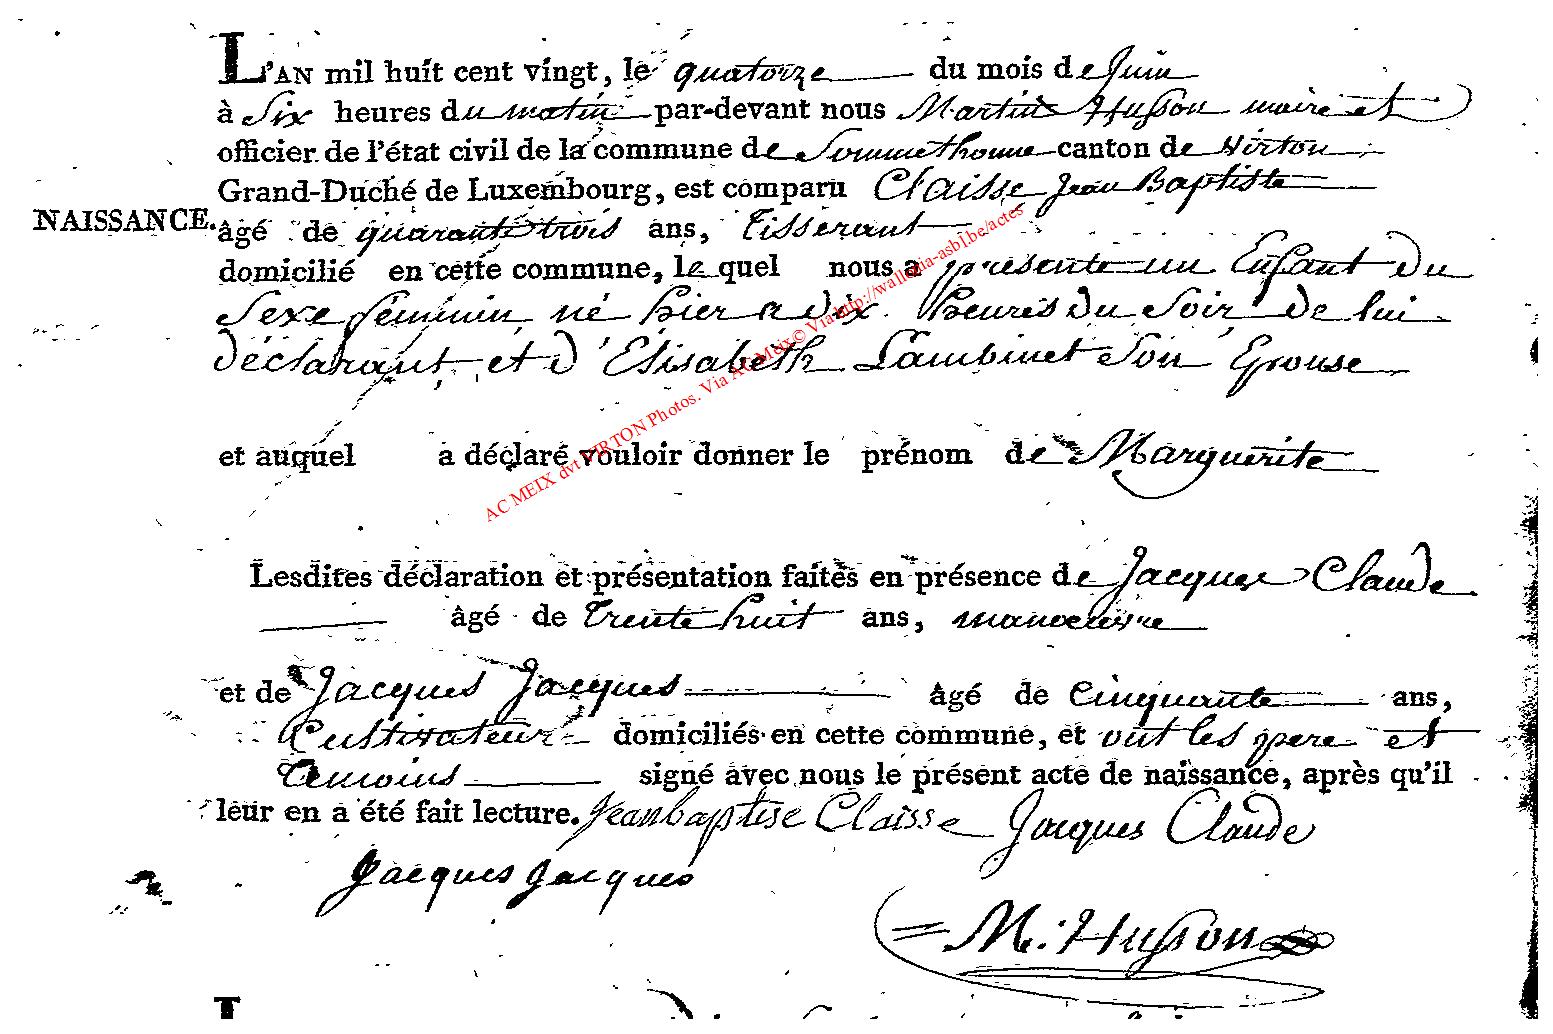 L'AN mil huit cent vingt, le quatorze du mois de Juin
à Six heures du matin par-devant nous Martin Husson maire et
officier de l'état civil de la commune de Sommethonne canton de Virton
Grand-Duché de Luxembourg, est comparu Claisse Jean Baptiste
NAISSANCE. âgé de quarante trois ans, Tisserant
domicilié en cette commune, le quel nous a présenté un Enfant du
Sexe féminin né hier a dix heures du Soir de lui
déclarant et d'Elisabeth Lambinet Son Epouse
et auquel a déclaré vouloir donner le prénom de Marguerite
Lesdites déclaration et présentation faites en présence de Jacques Claude
âgé de Trente huit ans, manoeuvre
et de Jacques Jacques âgé de Cinquante ans,
Cultivateur domiciliés en cette commune, et ont les pere et
temoins signé avec nous le présent acte de naissance, après qu'il
leur en a été fait lecture. Jeanbaptise Claisse Jacques Claude
Jacques Jacques
M. Husson
AC MEIX dvt VIRTON Photos. Via AC Meix© Via http://wallonia-asbl.be/actes